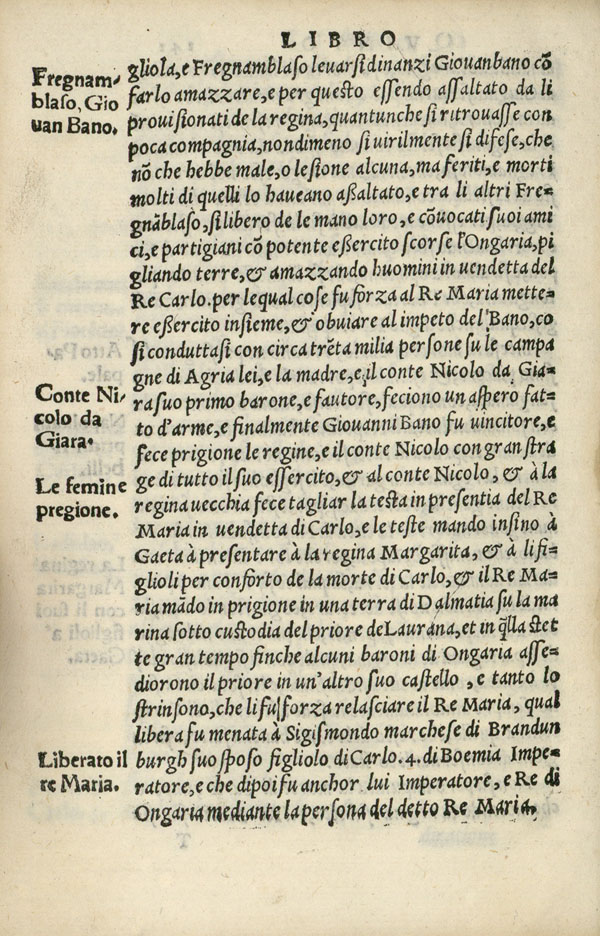 LIBRO
Fregnam-
blaso, Gio
uan Bano.
gliola, e Fregnamblaso leuarsi dinanzi Giouanbano cõ
farlo amazzare, e per questo essendo assaltato da li
prouisionati de la regina, quantunche si ritrouasse con
poca compagnia, nondimeno si uirilmente si difese, che
nõ che hebbe male, o lesione alcuna, ma feriti, e morti
molti di quelli lo haueano aßaltato, e tra li altri Fre-
gnãblaso, si libero de le mano loro, e cõuocati suoi ami
ci, e partigiani cõ potente eßercito scorse l'Ongaria, pi
gliando terre, & amazzando huomini in uendetta del
Re Carlo. per lequal cose fu forza al Re Maria mette-
re eßercito insieme, & obuiare al impeto del Bano, co
si conduttasi con circa trẽta milia persone su le campa
gne di Agria lei, e la madre, e il conte Nicolo da Gia-
Conte Ni-
colo da
Giara.
ra suo primo barone, e fautore, feciono un aspero fat-
to d'arme, e finalmente Giouanni Bano fu uincitore, e
fece prigione le regine, e il conte Nicolo con gran stra
Le femine
pregione.
ge di tutto il suo essercito, & al conte Nicolo, & à la
regina uecchia fece tagliar la testa in presentia del Re
Maria in uendetta di Carlo, e le teste mando insino à
Gaeta à presentare à la regina Margarita, & à li fi-
glioli per conforto de la morte di Carlo, & il Re Ma-
ria mãdo in prigione in una terra di Dalmatia su la ma
rina sotto custodia del priore de Laurana, et in q̃lla stet
te gran tempo finche alcuni baroni di Ongaria asse-
diorono il priore in un'altro suo castello, e tanto lo
strinsono, che li fu forza relasciare il Re Maria, qual
libera fu menata à Sigismondo marchese di Brandun
Liberato il
re Maria.
burgh suo sposo figliolo di Carlo. 4. di Boemia Impe-
ratore, e che dipoi fu anchor lui Imperatore, e Re di
Ongaria mediante la persona del detto Re Maria.